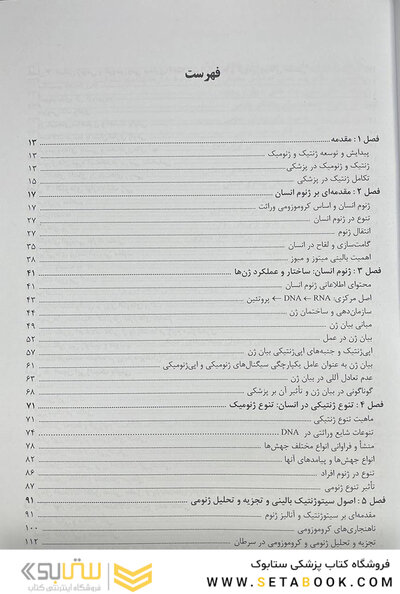 فهرست
فصل ۱: مقدمه ۱۳
پیدایش و توسعه ژنتیک و ژنومیک ۱۳
ژنتیک و ژنومیک در پزشکی ۱۳
تکامل ژنتیک در پزشکی ۱۵
فصل ۲: مقدمه‌ای بر ژنوم انسان ۱۷
ژنوم انسان و اساس کروموزومی وراثت ۱۷
تنوع در ژنوم انسان ۲۷
انتقال ژنوم ۲۷
گامت‌سازی و لقاح در انسان ۳۵
اهمیت بالینی میتوز و میوز ۳۸
فصل ۳: ژنوم انسان: ساختار و عملکرد ژن‌ها ۴۱
محتوای اطلاعاتی ژنوم انسان ۴۱
اصل مرکزی: DNA ← RNA ← پروتئین ۴۳
سازمان‌دهی و ساختمان ژن ۴۴
مبانی بیان ژن ۴۹
بیان ژن در عمل ۵۲
اپی‌ژنتیک و جنبه‌های اپی‌ژنتیکی بیان ژن ۵۷
بیان ژن به عنوان عامل یکپارچگی سیگنال‌های ژنومیکی و اپی‌ژنومیکی ۶۱
عدم تعادل آللی در بیان ژن ۶۳
گوناگونی در بیان ژن و تأثیر آن بر پزشکی ۶۸
فصل ۴: تنوع ژنتیکی در انسان: تنوع ژنومیک ۷۱
ماهیت تنوع ژنتیکی ۷۱
تنوعات شایع وراثتی در DNA ۷۴
منشأ و فراوانی انواع مختلف جهش‌ها ۷۸
انواع جهش‌ها و پیامدهای آنها ۸۲
تنوع در ژنوم افراد ۸۶
تأثیر تنوع ژنومی ۸۷
فصل ۵: اصول سیتوژنتیک بالینی و تجزیه و تحلیل ژنومی ۹۱
مقدمه‌ای بر سیتوژنتیک و آنالیز ژنوم ۹۱
ناهنجاری‌های کروموزومی ۱۰۰
تجزیه و تحلیل ژنومی و کروموزومی در سرطان ۱۱۲
فروشگاه کتاب پزشکی ستابوک
WWW.SETABOOK.COM
ستابوک
فروشگاه اینترنتی کتاب